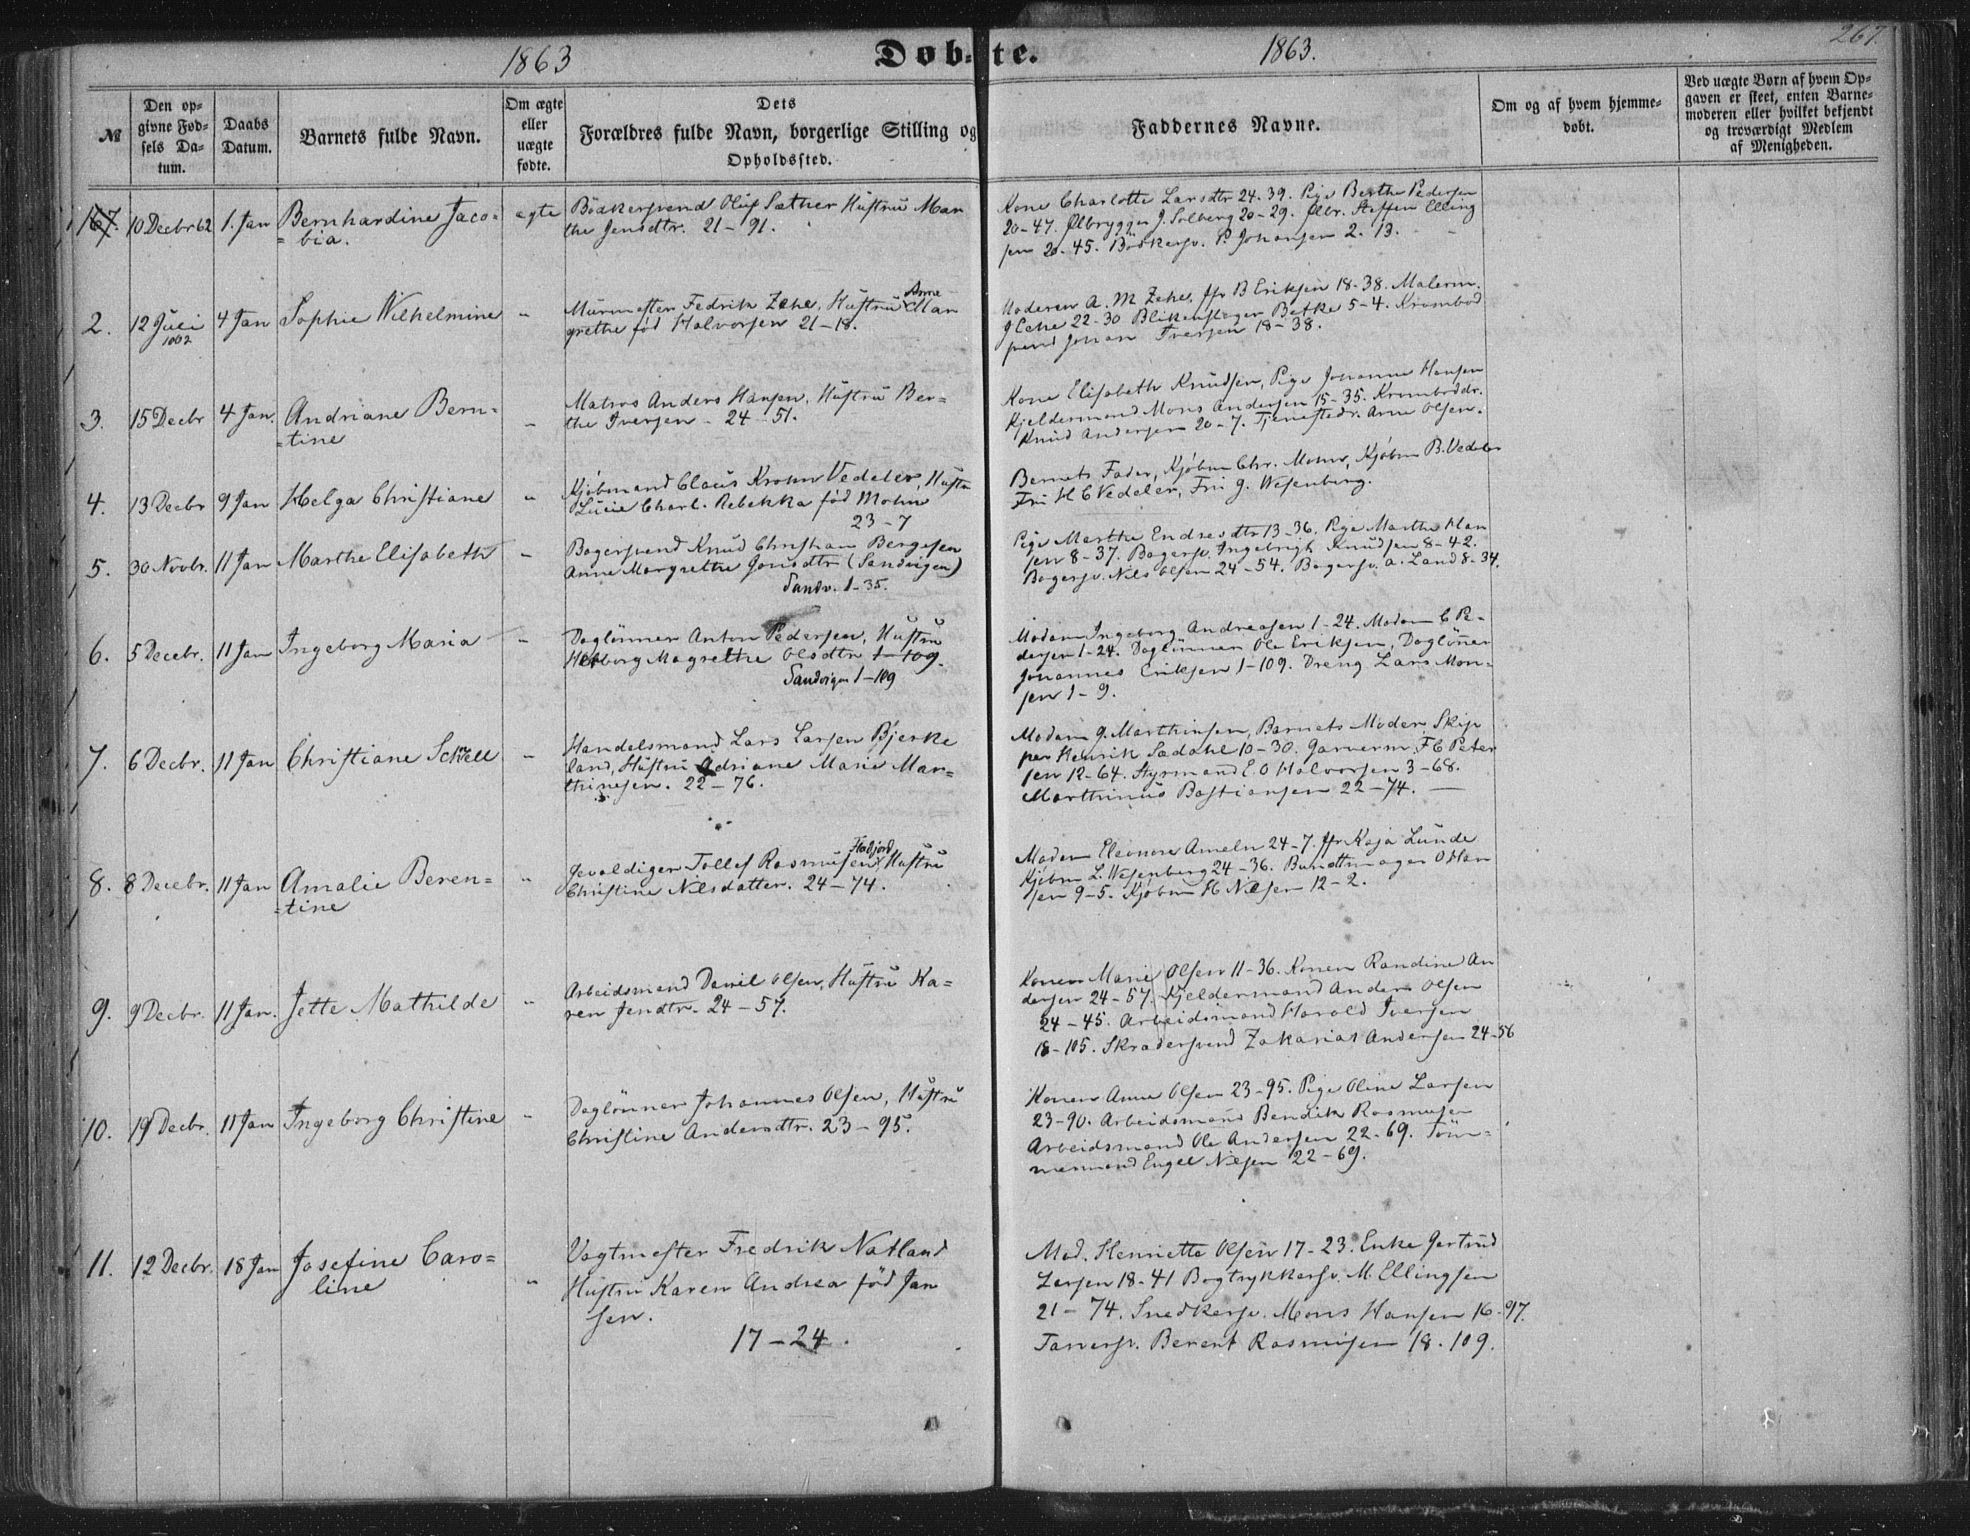 1863 Døb- te. 1863. 267.
№
Den op-
givne Fød-
sels Da-
tum.
Daabs
Datum.
Barnets fulde Navn.
Om ægte
eller
uægte
fødte.
Dets
Forældres fulde Navn, borgerlige Stilling og
Opholdssted.
Faddernes Navne.
Om og af hvem hjemme-
døbt.
Ved uægte Børn af hvem Op-
gaven er skeet, enten Barne-
moderen eller hvilket bekjendt
og troværdigt Medlem
af Menigheden.
10 Decbr 62 1. Jan Bernhardine Jaco-
=bia.
ægte
Bødkersvend Oluf Sæther Hustru Mar
the Jensdtr. 21-91.
Kone Charlotte Larsdtr 24.39. Pige Berthe Pedersen
20-47. Ølbrygger J. Solberg 20-29. Ølbr. Steffen Elling
sen 20-45. Bødkersv. P. Johansen 2.13.
2. 12 Juli 1862 4 Jan Sophie Wilhelmine "
Murmester Fedrik Zehe, Hustru Anne Mar
grethe fød Halvorsen 21-18.
Moderen A. M Zehe, Jfr B Eriksen 18-38. Malerm.
J Zehe 22-30 Blikkenslager Betke 5-4. Krambod
svend Johan Iversen 18-38.
3. 15 Decbr 4 Jan. Andriane Bern-
=tine
"
Matros Anders Hansen, Hustru Ber-
the Iversen 24-51.
Kone Elisabeth Knudsen, Pige Johanne Hansen
Kjeldermand Mons Andersen 15-35. Kramboddr.
Knud Andersen 20-7. Tjenestedr. Arne Olsen.
4. 13 Decbr 9 Jan Helga Christiane "
Kjøbmand Claus Krohn Vedeler, Hustr
Lucie Charl. Rebekka fød Mohn
23-7
Bernets Fader, Kjøbm Chr. Mohn, Kjøbm B. Vedeler
Fru H C Vedeler, Fru J. Wesenberg.
5. 30 Novbr. 11 Jan Marthe Elisabeth "
Bagersvend Knud Christian Bergesen
Anne Margrethe Jonsdtr (Sandvigen)
Sandv. 1-35.
Pige Marthe Endresdtr 13-36. Pige Marthe Han
sen 8-37. Bagersv. Ingebrigt Knudsen 8-42.
Bagersv. Nils Olsen 24-54. Bagersv. A. Land 8-34.
6. 5 Decebr. 11 Jan Ingeborg Maria "
Daglönner Anton Pedersen, Hustru
Herborg Magrethe Olsdtr 1-109.
Sandvigen 1-109
Madam Ingeborg Andreasen 1-24. Madam C Pe-
dersen 1-24. Daglönner Ole Eriksen, Daglönner
Johannes Eriksen 1-109. Dreng Lars Mon-
sen 1-9.
7. 6 Decbr. 11 Jan Christiane Schrell "
Handelsmand Lars Larsen Bjerke
land, Hustru Adriane Marie Mar-
thinesen. 22-76.
Madam G. Marthinsen, Barnets Moder, Skip
per Henrik Sædahl 10-30. Garverm. F C Peter
sen 12-64. Styrmand E. O Halvorsen 3-68.
Marthinus Bastiansen 22-74.
8. 8 Decebr. 11 Jan Amalie Beren-
=tine
"
Gevaldiger Tollef Rasmussen, Hustru
Christine Nilsdatter. 24-74.
Madam Eleonora Ameln 24-7. Jfr Kaja Lunde
Kjöbm L. Wesenberg 24-36. Bundtmager O Han
sen 9-5. Kjøbm H Nilsen 12-2.
9. 9 Decbr. 11 Jan. Jette Mathilde "
Arbeidsmand Daniel Olsen, Hustru Ka-
ren Jendtr. 24-57.
Konen Marie Olsen 11-36. Konen Randine An
dersen 24-57. Kjeldermand Anders Olsen
24-45. Arbeidsmand Harald Iversen
18-105. Skradersvend Zakarias Andersen 24-56
10. 19 Decbr. 11 Jan Ingeborg Christine "
Daglönner Johannes Olsen, Hustru
Christine Andersdtr. 23-95.
Konen Anne Olsen 23-95. Pige Oline Larsen
23-90. Arbeidsmand Bendik Rasmusen
Arbeidsmand Ole Andersen 22-69. Töm-
mermand Engel Nilsen 22-69.
11. 12 Decbr. 18 Jan Josefine Caro-
line
"
Vagtmester Fredrik Natland
Hustru Karen Andrea fød Jan
sen.
17-24.
Mad. Henriette Olsen 17-23. Enke Gertrud
Larsen 18-41 Bogtrykkersv. M. Ellingsen
21-74. Snedkersv. Mons Hansen 16-97.
Farversv. Berent Rasmusen 18.109.